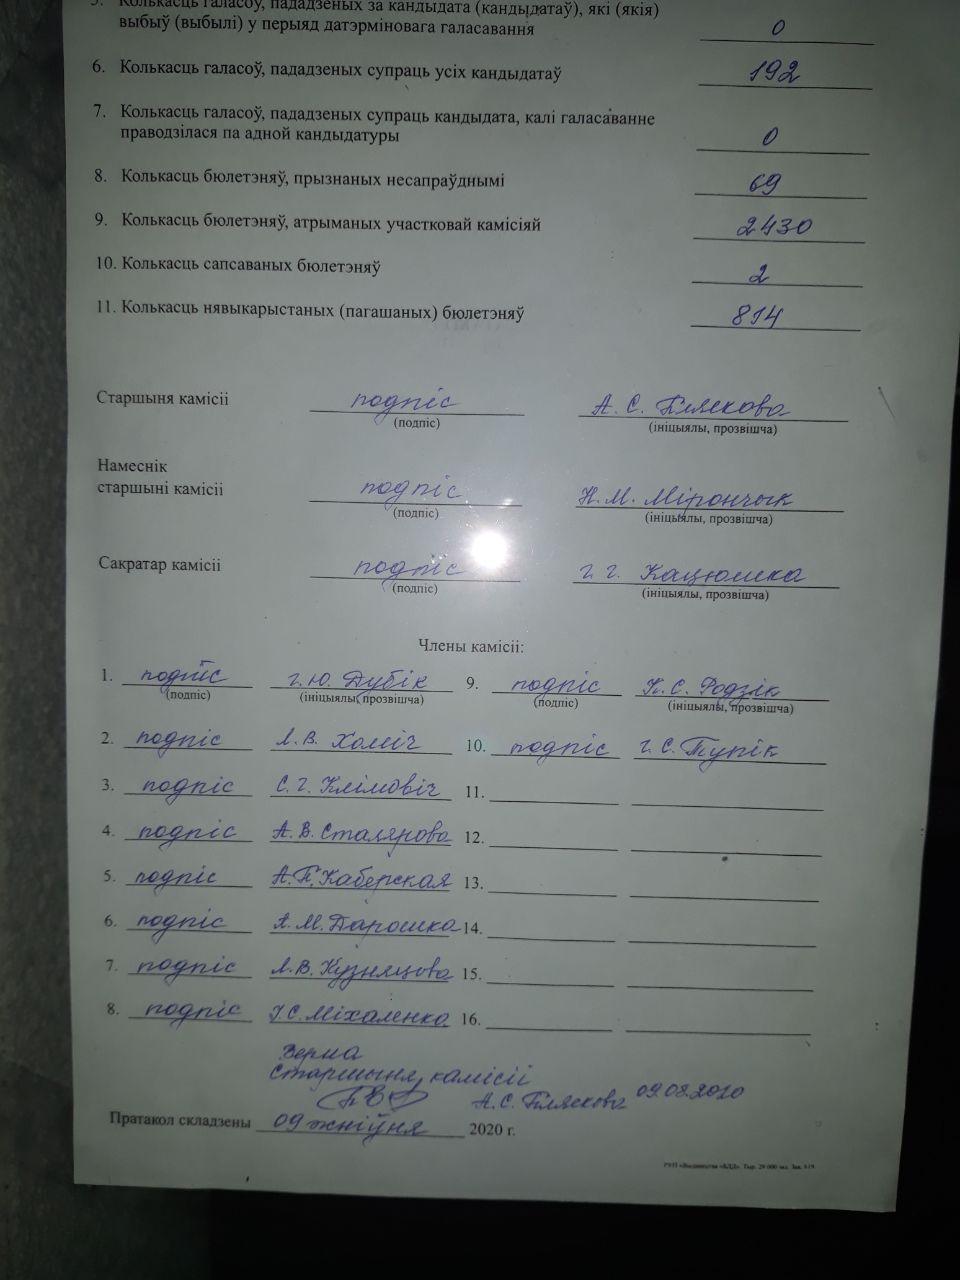 5. Колькасць галасоў, пададзеных за кандыдата (кандыдатаў), які (якія)
выбыў (выбылі) у перыяд датэрміновага галасавання 0
6. Колькасць галасоў, пададзеных супраць усіх кандыдатаў 192
7. Колькасць галасоў, пададзеных супраць кандыдата, калі галасаванне
праводзілася па адной кандыдатуры 0
8. Колькасць бюлетэняў, прызнаных несапраўднымі 69
9. Колькасць бюлетэняў, атрыманых участковай камісіяй 2430
10. Колькасць сапсаваных бюлетэняў 2
11. Колькасць нявыкарыстаных (пагашаных) бюлетэняў 814
Старшыня камісіі подпіс А. С. Блякова
(подпіс) (ініцыялы, прозвішча)
Намеснік
старшыні камісіі подпіс Н. М. Мірончык
(подпіс) (ініцыялы, прозвішча)
Сакратар камісіі подпіс Г. Г. Кацюшка
(подпіс) (ініцыялы, прозвішча)
Члены камісіі:
1. подпіс Г. Ю. Дубік 9. подпіс К. С. Родзік
(подпіс) (ініцыялы, прозвішча) (подпіс) (ініцыялы, прозвішча)
2. подпіс Л. В. Хоміч 10. подпіс Г. С. Тупік
3. подпіс С. Г. Клімовіч 11.
4. подпіс А. В. Сталярова 12.
5. подпіс А. П. Каберская 13.
6. подпіс А. М. Парошка 14.
7. подпіс Л. В. Кузняцова 15.
8. подпіс І. С. Міхаленка 16.
Верна
Старшыня камісіі
А. С. Блякова 09.08.2020
Пратакол складзены 09 жніўня 2020 г.
РУП «Выдавецтва «БДД». Тыр. 29 000 экз. Зак. 819